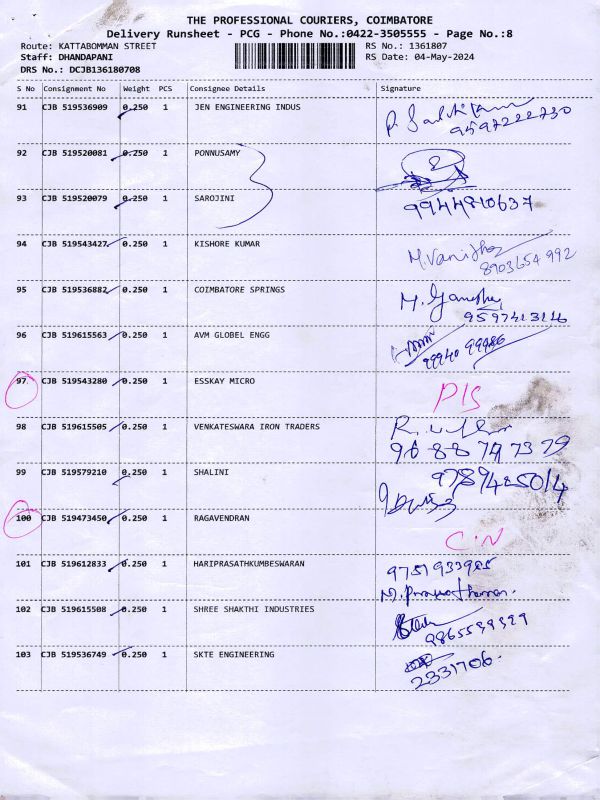 THE PROFESSIONAL COURIERS, COIMBATORE
Delivery Runsheet - PCG - Phone No.:0422-3505555 - Page No.:8
Route: KATTABOMMAN STREET RS No.: 1361807
Staff: DHANDAPANI RS Date: 04-May-2024
DRS No.: DCJB136180708
S No Consignment No Weight PCS Consignee Details Signature
91 CJB 519536909 0.250 1 JEN ENGINEERING INDUS
92 CJB 519520081 0.250 1 PONNUSAMY
93 CJB 519520079 0.250 1 SAROJINI 9944810637
94 CJB 519543427 0.250 1 KISHORE KUMAR
8903654992
95 CJB 519536882 0.250 1 COIMBATORE SPRINGS M. Ganesh
96 CJB 519615563 0.250 1 AVM GLOBEL ENGG
99940 99986
97 CJB 519543280 0.250 1 ESSKAY MICRO
98 CJB 519615505 0.250 1 VENKATESWARA IRON TRADERS
96 88 747379
99 CJB 519579210 0.250 1 SHALINI 9789425014
100 CJB 519473450 0.250 1 RAGAVENDRAN
C.N
101 CJB 519612833 0.250 1 HARIPRASATHKUMBESWARAN 9751933985
102 CJB 519615508 0.250 1 SHREE SHAKTHI INDUSTRIES
103 CJB 519536749 0.250 1 SKTE ENGINEERING
2331706.